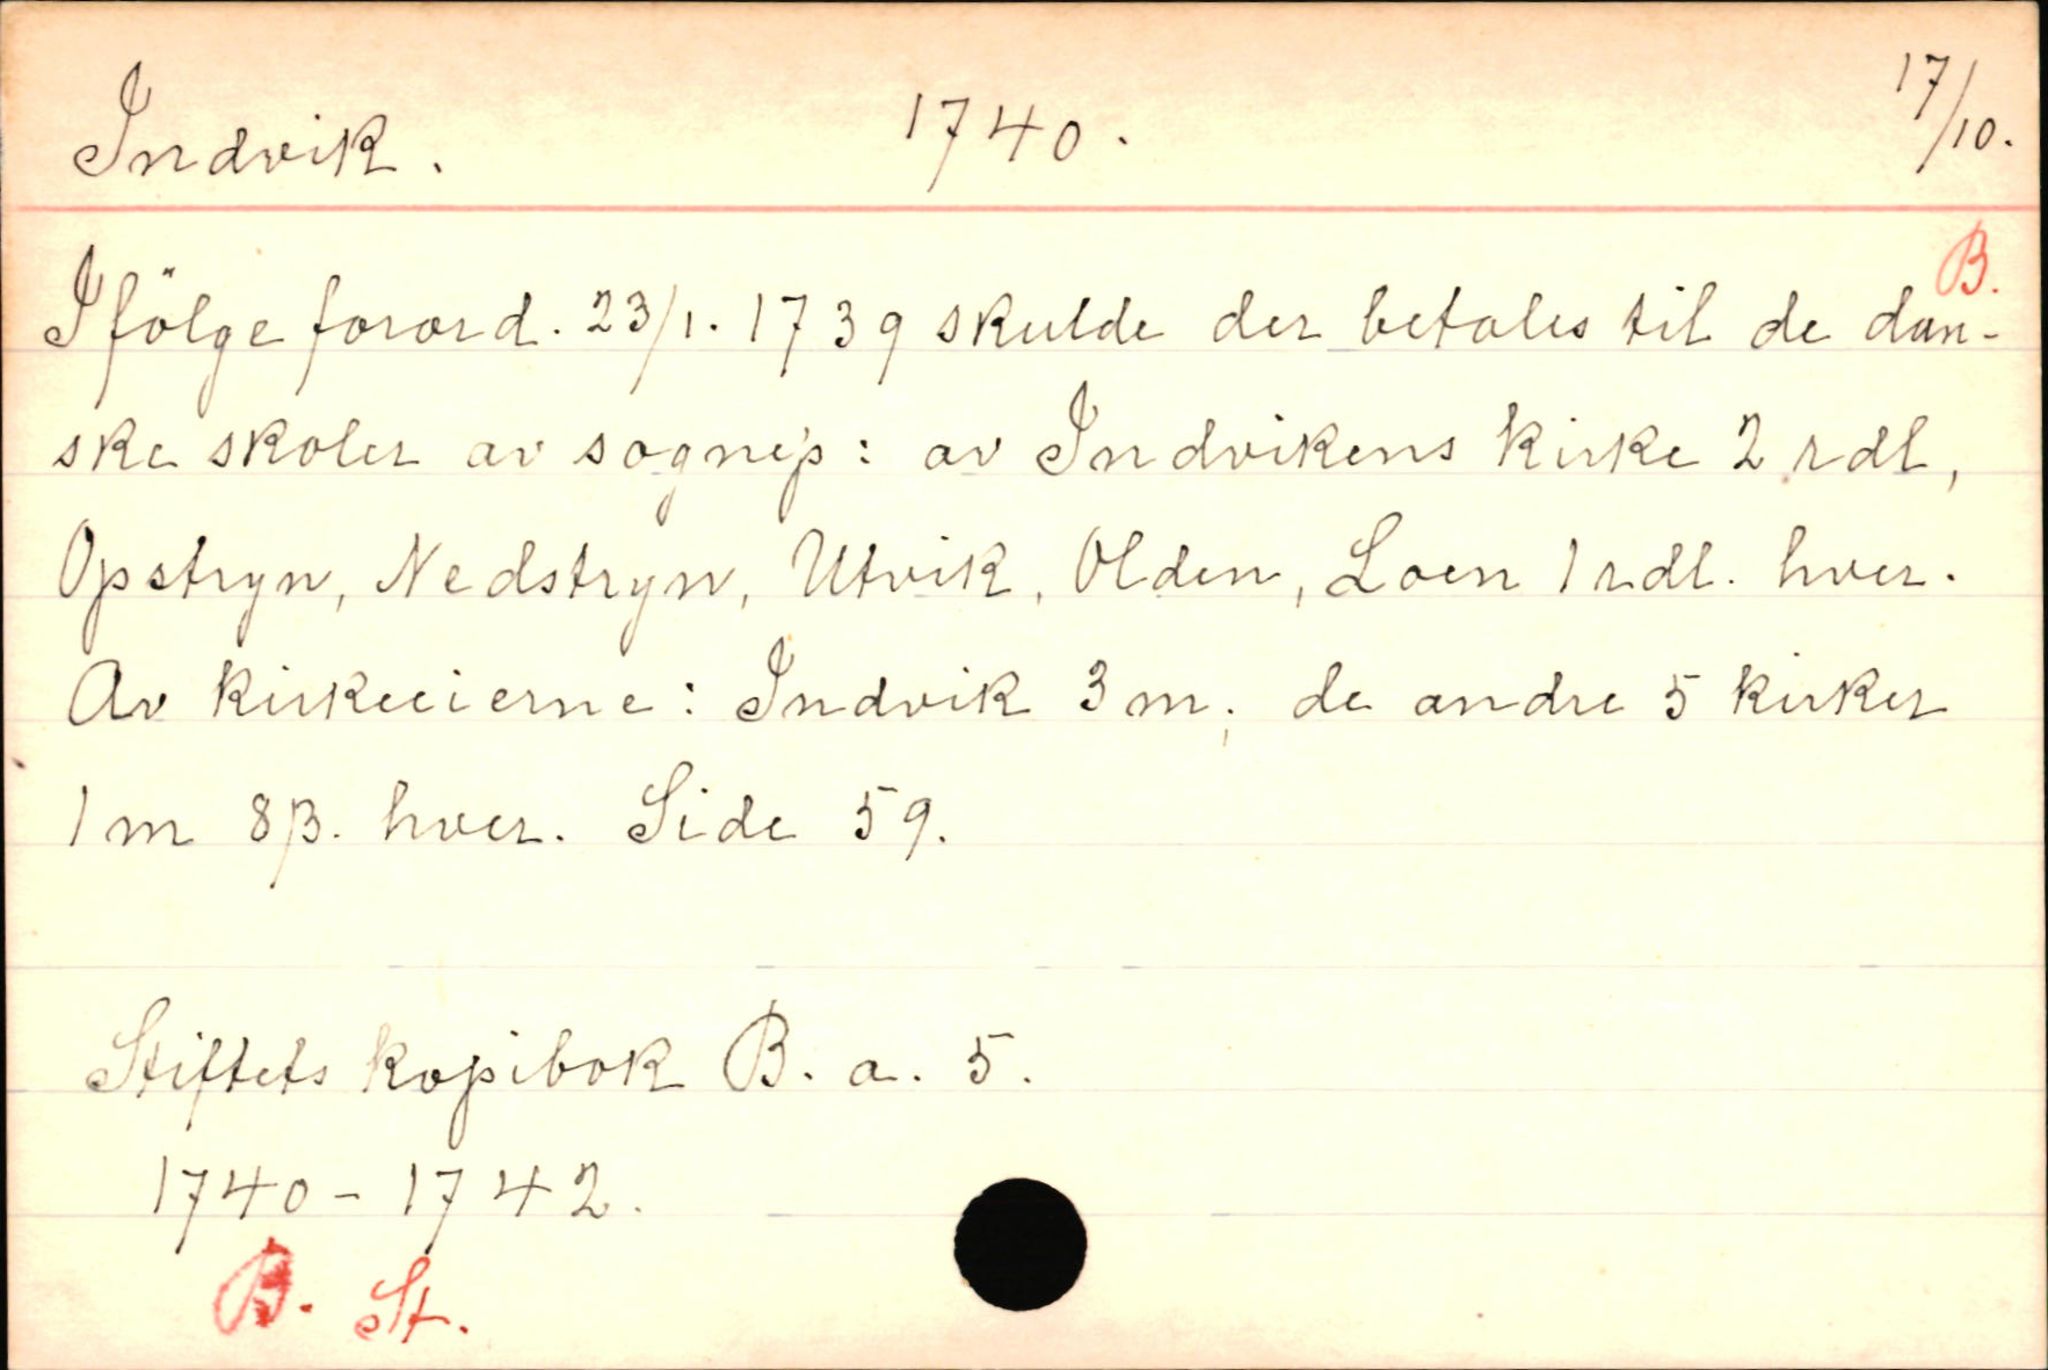 Indvik. 1740. 17/10.
B.
Ifölge forord. 23/1. 1739 skulde der betales til de dan-
ske skoler av sognep: av Indvikens kirke 2 rdl,
Opstryn, Nedstryn, Utvik, Olden, Loen 1 rdl. hver.
Av kirkeeierne: Indvik 3 m; de andre 5 kirker
1 m 8 β. hver. Side 59.
Stiftets kopibok B. a. 5.
1740-1742.
B. St.